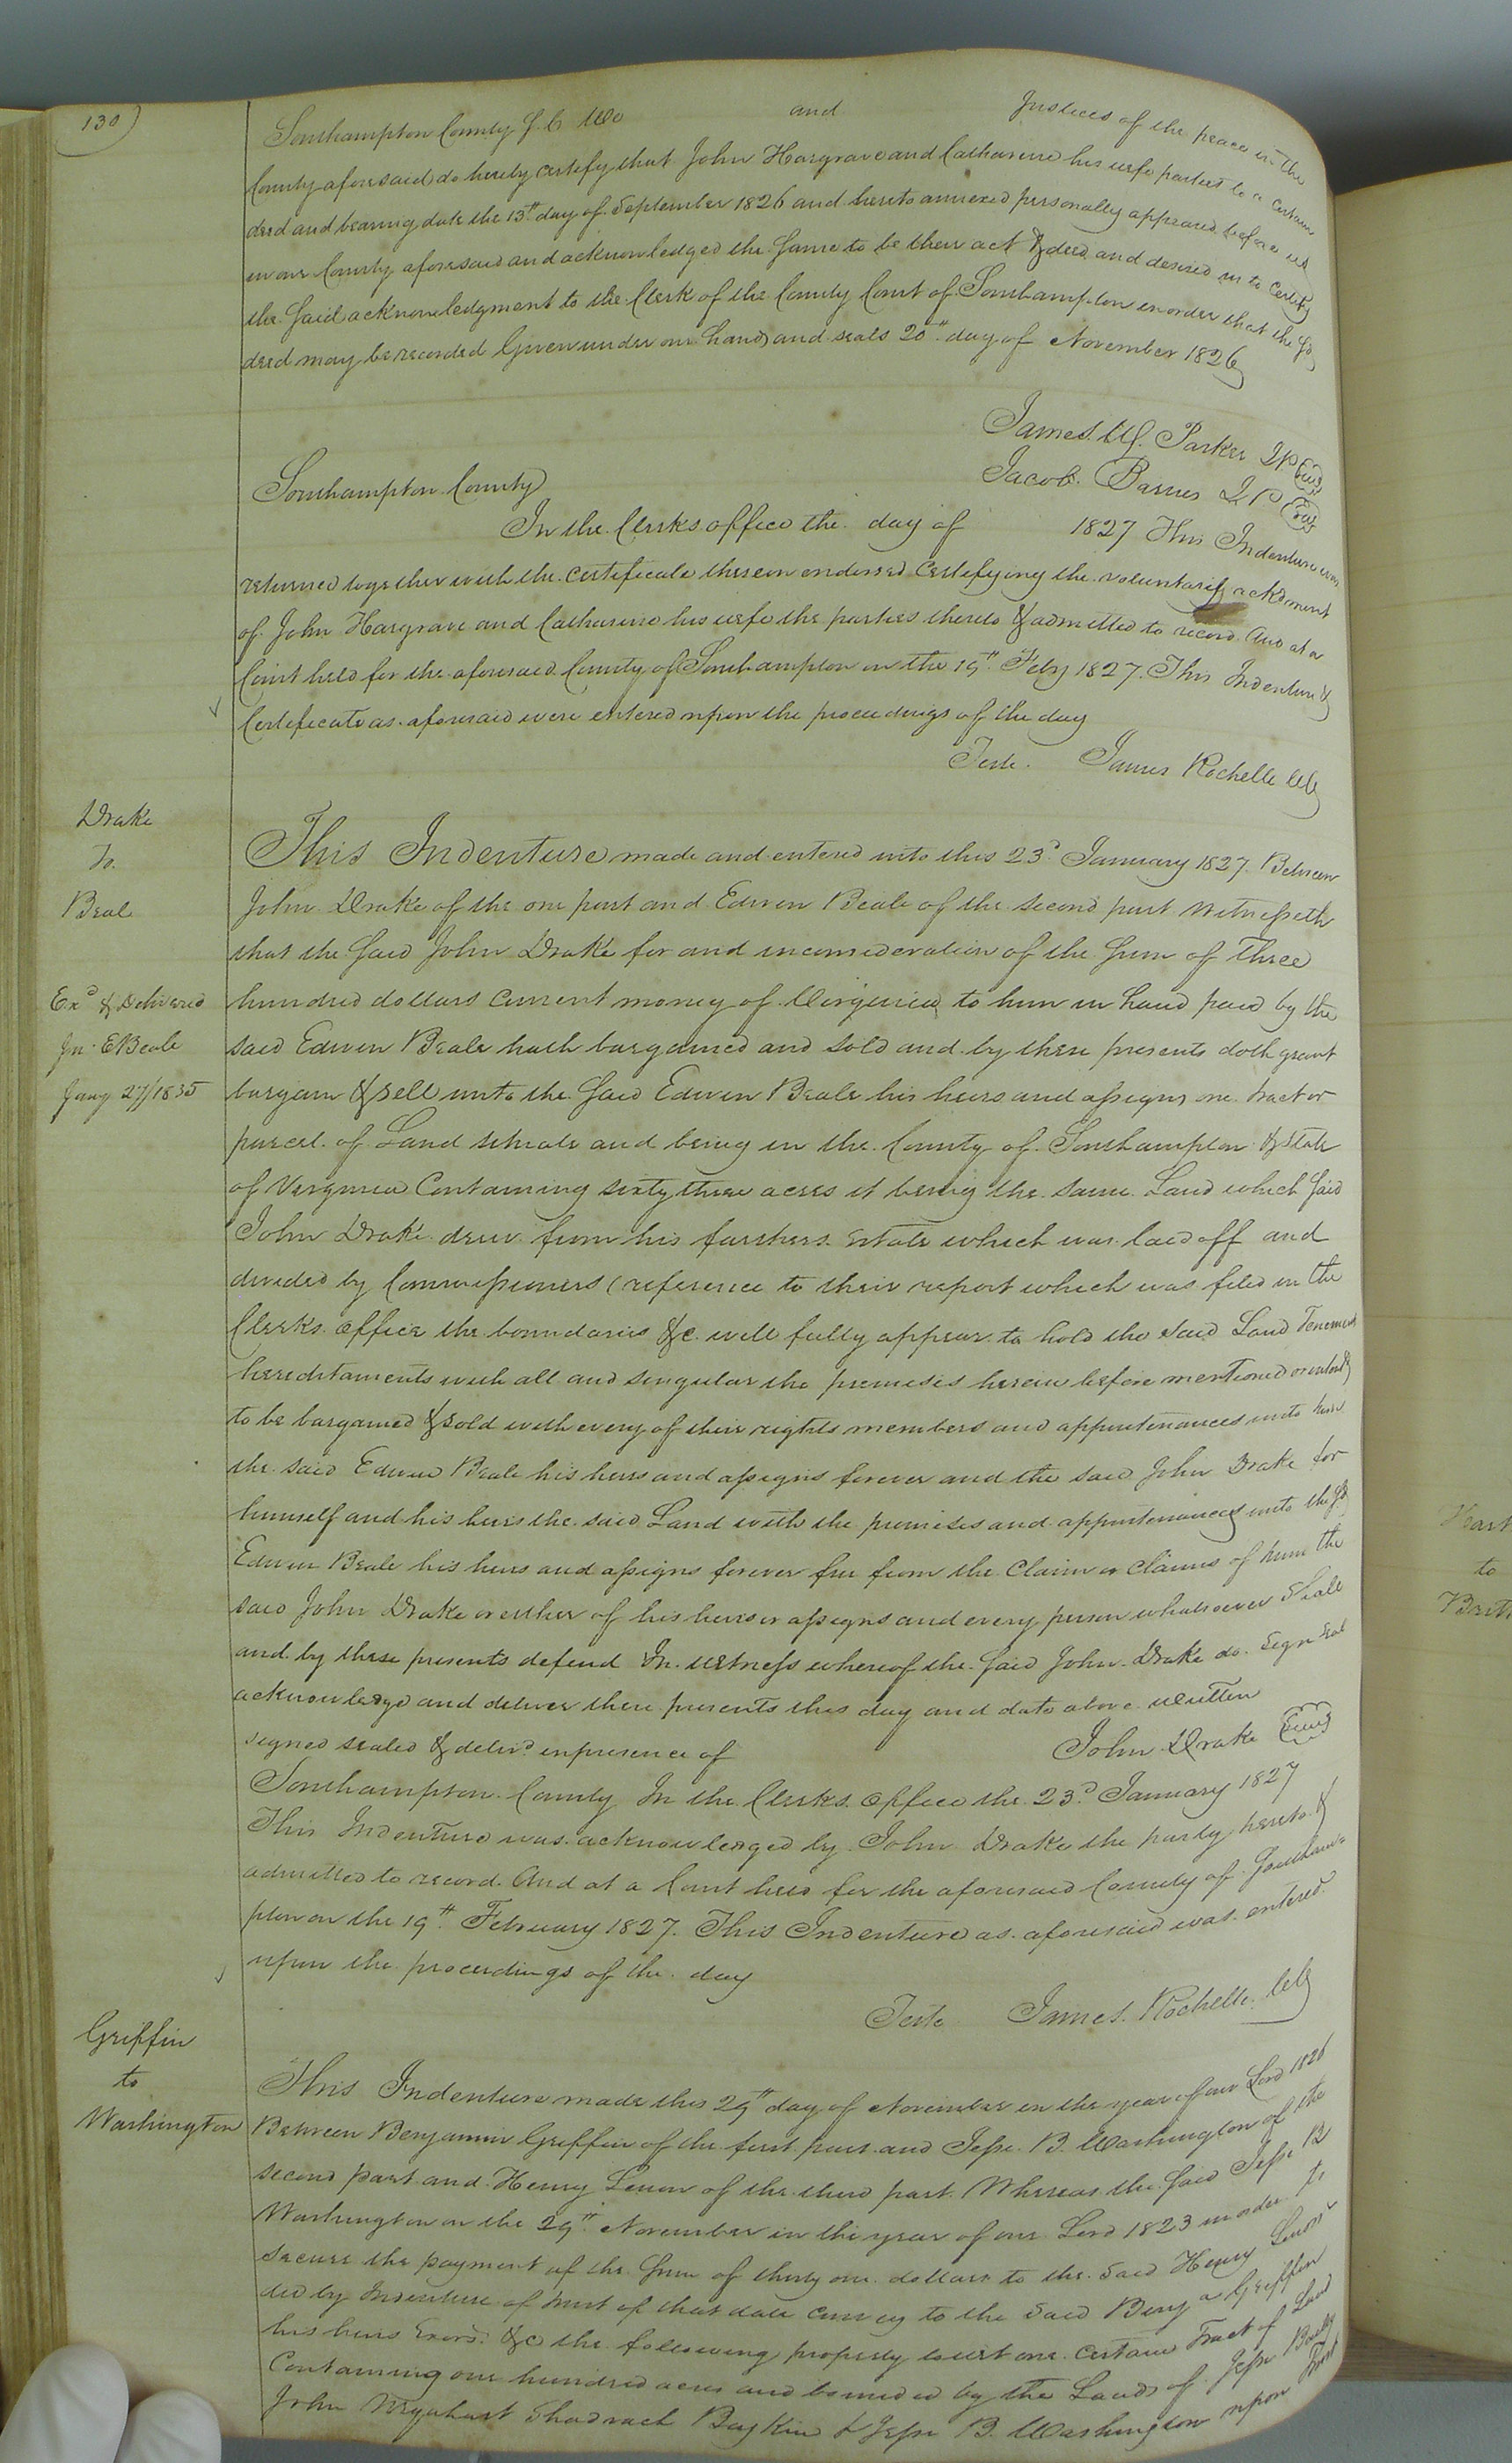 130)
Southampton County J.C. We and Justices of the peace in the
County aforesaid do hereby certify that John Hargrave and Catharine his wife parties to a certain
deed and bearing date the 13th day of September 1826 and hereto annexed personally appeared before us
in our County aforesaid and acknowledged the same to be their act & deed and desired us to certify
the said acknowledgment to the Clerk of the County Court of Southampton in order that the sd
deed may be recorded Given under our hands and seals 20th day of November 1826
James W. Parker JP Seal
Jacob Barnes J P Seal
Southampton County
In the Clerks office the day of 1827 This Indenture was
returned together with the certificate thereon endorsed certifying the voluntary ackdment
of John Hargrave and Catharine his wife the parties thereto & admitted to record. And at a
Court held for the aforesaid County of Southampton on the 19th Feby 1827. This Indenture &
Certificate as aforesaid were entered upon the proceedings of the day
Teste. James Rochelle Clk
Drake
To
Beal
Exd & Delivered
Jn. E Beale
Jany 27/1835
This Indenture made and entered into this 23d January 1827. Between
John Drake of the one part and Edwin Beale of the second part Witnesseth
that the said John Drake for and in consideration of the sum of three
hundred dollars current money of Virginia to him in hand paid by the
said Edwin Beale hath bargained and sold and by these presents doth grant
bargain & sell unto the said Edwin Beale his heirs and assigns one tract or
parcel of Land situate and being in the County of Southampton & State
of Virginia Containing sixty three acres it being the same Land which said
John Drake drew from his farthers Estate which was laid off and
divided by Commissioners (reference to their report which was filed in the
Clerks office the boundaries &c will fully appear to hold the said Land Tenements
hereditaments with all and singular the premises herein before mentioned or intend
to be bargained & sold with every of their rights members and appurtenances unto him
the said Edwin Beale his heirs and assigns forever and the said John Drake for
himself and his heirs the said Land with the premises and appurtenances unto the sd
Edwin Beale his heirs and assigns forever free from the Claim or Claims of him the
said John Drake or either of his heirs or assigns and every person whatsoever shall
and by these presents defend In witness whereof the said John Drake do Sign Seal
acknowledge and deliver these presents this day and date above written
signed sealed & delivd in presence of John Drake Seal
Southampton County In the Clerks office the 23d January 1827
This Indenture was acknowledged by John Drake the party hereto &
admitted to record. And at a Court held for the aforesaid County of Southam
pton on the 19th February 1827. This Indenture as aforesaid was entered
upon the proceedings of the day
Teste James Rochelle Clk
Griffin
to
Washington
This Indenture made this 29th day of November in the year of our Lord 1826
Between Benjamin Griffin of the first part and Jesse B. Washington of the
second part and Henry Lenow of the third part. Whereas the said Jesse B
Washington on the 29th November in the year of our Lord 1823 in order to
secure the payment of the sum of thirty one dollars to the said Henry Lenow
did by Indenture of trust of that date convey to the said Benja Griffin
his heirs Exors. &c the following property towit one certain Tract of Land
Containing one hundred acres and bounded by the Lands of Jesse
John Urquhart Shadrach Baykin & Jesse B. Washington upon
to